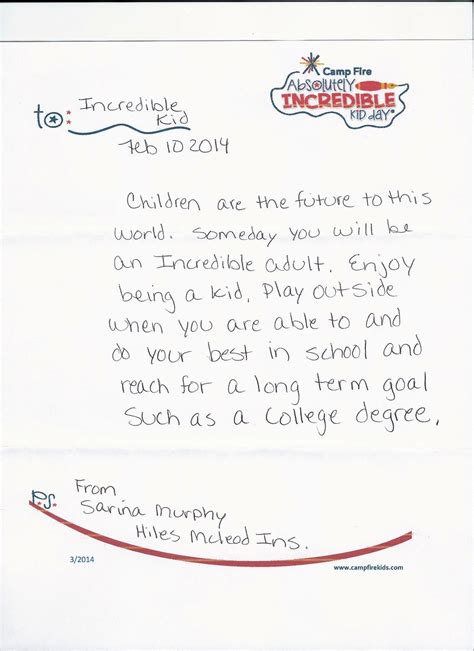 Camp Fire
Absolutely
INCREDIBLE
KID day®
to: Incredible
Kid
Feb 10 2014
Children are the future to this
world. Someday you will be
an Incredible adult. Enjoy
being a kid, Play outside
when you are able to and
do your best in school and
reach for a long term goal
Such as a College degree.
From
p.s. Sarina Murphy
Hiles McLeod Ins.
3/2014
www.campfirekids.com